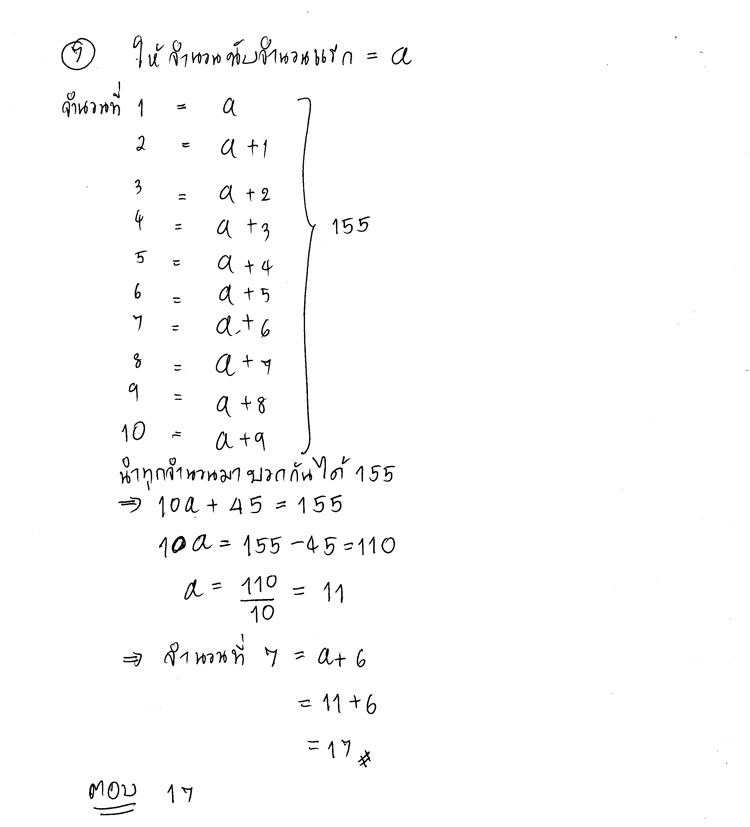 7 ให้ จำนวนนับจำนวนแรก = a
จำนวนที่ 1 = a
2 = a + 1
3 = a + 2
4 = a + 3
155
5 = a + 4
6 = a + 5
7 = a + 6
8 = a + 7
9 = a + 8
10 = a + 9
นำทุกจำนวนมาบวกกันได้ 155
⇒ 10a + 45 = 155
10a = 155 - 45 = 110
a = 110/10 = 11
⇒ จำนวนที่ 7 = a + 6
= 11 + 6
= 17 #
ตอบ 17